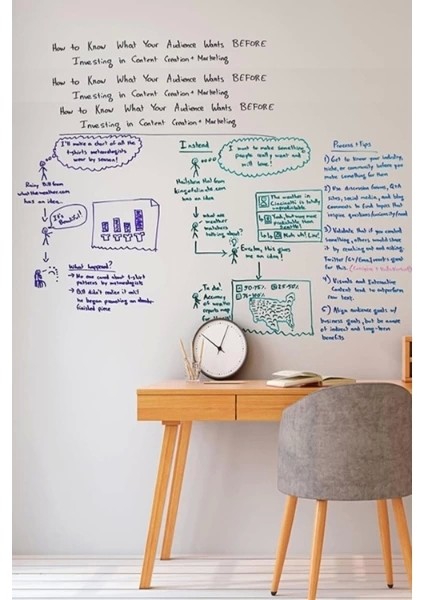 How to Know What Your Audience Wants BEFORE
Investing in Content Creation + Marketing
How to Know What Your Audience Wants BEFORE
Investing in Content Creation + Marketing
How to Know What Your Audience Wants BEFORE
Investing in Content Creation + Marketing
I'll make a chart of all the
t-shirts meteorologists
wear by season!
Rainy Bill from
whattheweather.com
has an idea...
It's
Beautiful!
What happened?
→ No one cared about t-shirt
patterns by meteorologists
→ Bill didn't make it call
to began promoting on
finished piece
Instead
I want to make something
people really want and
will love!
Hailstorm Hal from
has an idea
what are
weather
watchers
talking about?
The weather in
Cincinnati is totally
unpredictable
Yeah, but way more
predictable than
Seattle!
Nuh uh! Liar!
Eureka, this gives
me an idea!
To do:
Accuracy
of weather
reports map
50-75%
25-50%
76-100%
Process + Tips
1) Get to know your industry,
niche, or community before you
make something for them
2) Use discussion forums, Q&A
sites, social media, and blog
comments to find topics that
inspire questions/curiosity/need
3) Validate that if you create
something, others would share
it by reaching out and asking.
Twitter/G+/Email works great
for this.
4) Visuals and Interactive
Content tend to outperform
raw text.
5) Align audience goals w/
business goals, but be aware
of indirect and long-term
benefits